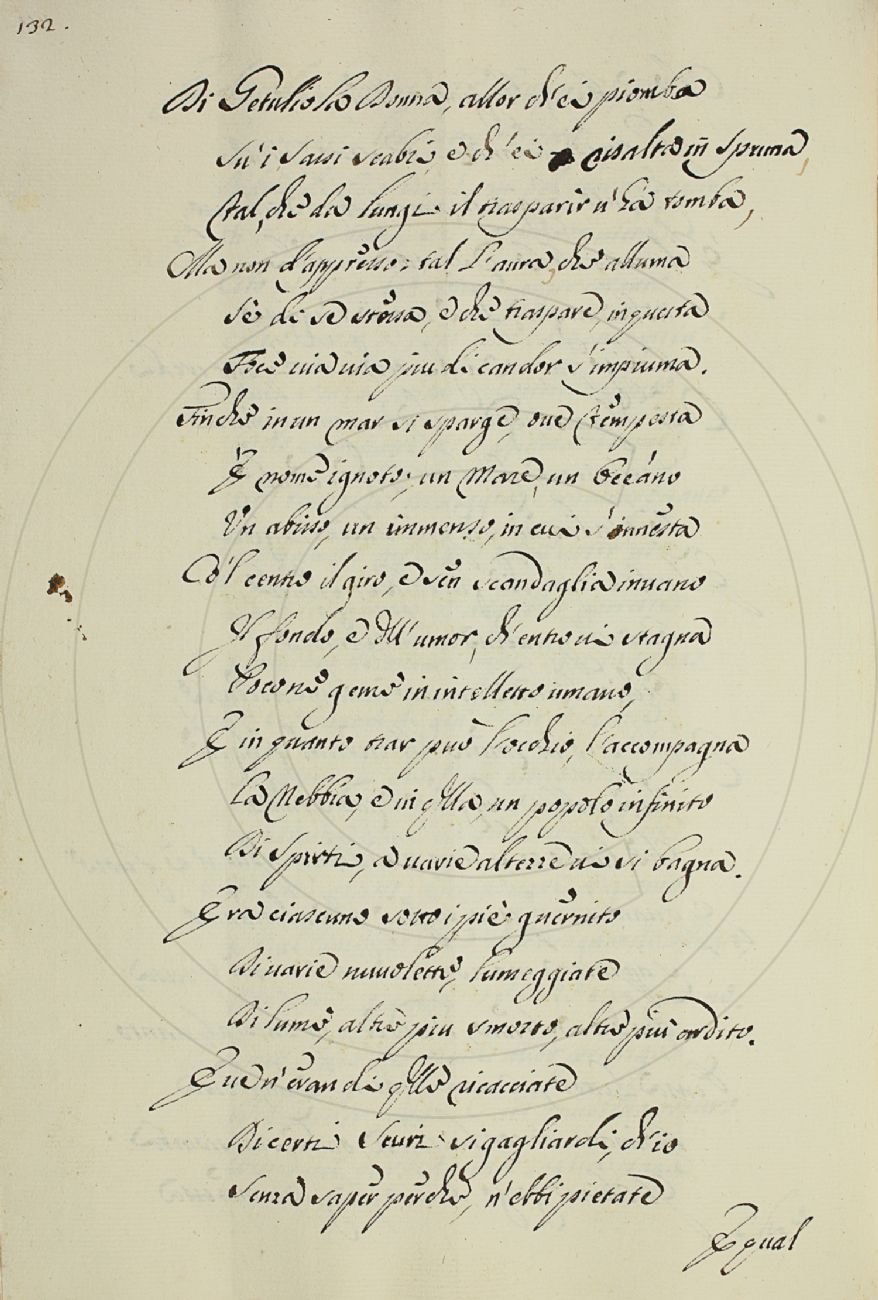 132.
Di Getulio la Donna, allor ch'ei piomba
Su' i sassi scabri, e ch' ei risalta in spuma,
Tal, che da lungi il trasparir n' hà tomba,
Ma non d'appresso; tal l'aura, che alluma
Sè di se stessa, e che traspare, in questa
Foce via via piu di candor s'impiuma.
Finche in un mar si sparge, ove tempesta
È nome ignoto; un Mare, un Oceáno
Un abisso, un immenso, in cui s'innesta
Co'l centro il giro, e sen scandaglia invano
Il fondo, e dell'umor, ch'entro vi stagna
Poco ne geme in intelletto umano,
E in quanto trar può l'occhio, l'accompagna
La Nebbia, e in q̃lla un popolo infinito
Di Spirti, a varie altezze vi si bagna.
Era ciascuno sotto i piè guernito
Di varie nuvolette, lumeggiate
Di lume, altre piu smorto, altre più ardito.
E ve n'eran di q̃lle ricacciate
Di certi scuri sì gagliardi, ch'io
Senza saper perche, n'ebbi pietate
E qual